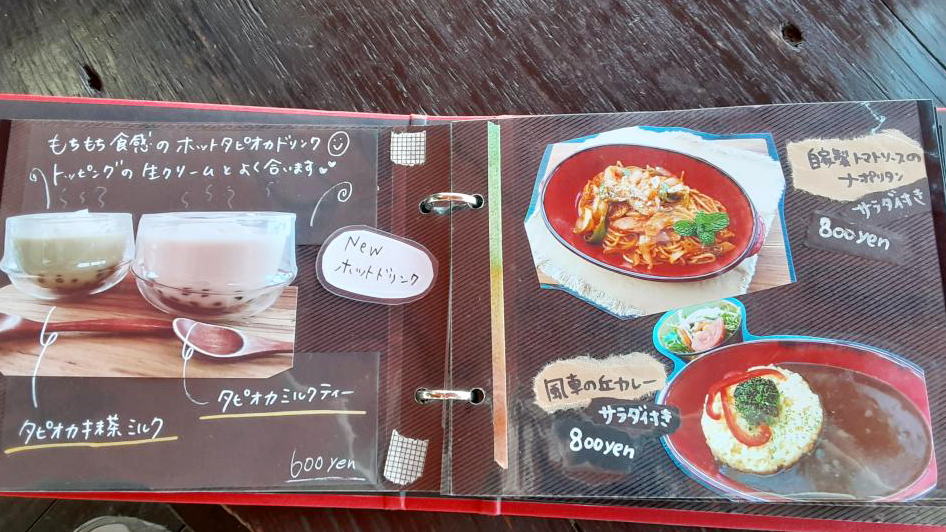 もちもち食感のホットタピオカドリンク
トッピングの生クリームとよく合います
New
ホットドリンク
タピオカミルクティー
タピオカ抹茶ミルク
600yen
自家製トマトソースの
ナポリタン
サラダ付き
800yen
風車の丘カレー
サラダ付き
800yen